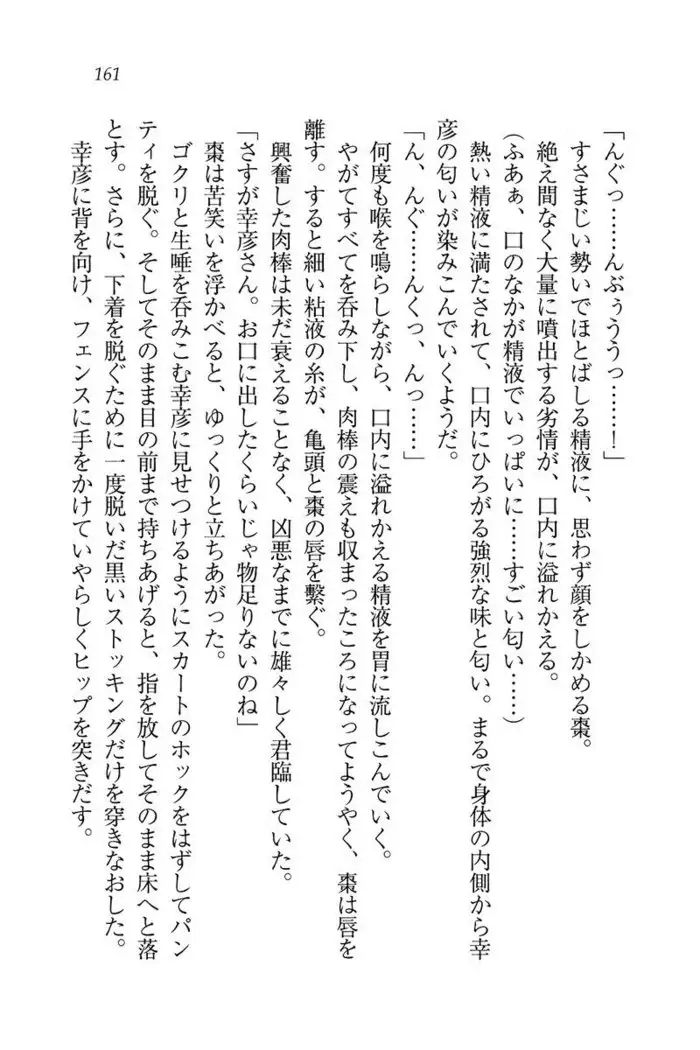 161
「んぐっ……んぶぅううっ……！」
すさまじい勢いでほとばしる精液に、思わず顔をしかめる棗。
絶え間なく大量に噴出する劣情が、口内に溢れかえる。
（ふあぁ、口のなかが精液でいっぱいに……すごい匂い……）
熱い精液に満たされて、口内にひろがる強烈な味と匂い。まるで身体の内側から幸
彦の匂いが染みこんでいくようだ。
「ん、んぐ……んくっ、んっ……」
何度も喉を鳴らしながら、口内に溢れかえる精液を胃に流しこんでいく。
やがてすべてを呑み下し、肉棒の震えも収まったころになってようやく、棗は唇を
離す。すると細い粘液の糸が、亀頭と棗の唇を繋ぐ。
興奮した肉棒は未だ衰えることなく、凶悪なまでに雄々しく君臨していた。
「さすが幸彦さん。お口に出したくらいじゃ物足りないのね」
棗は苦笑いを浮かべると、ゆっくりと立ちあがった。
ゴクリと生唾を呑みこむ幸彦に見せつけるようにスカートのホックをはずしてパン
ティを脱ぐ。そしてそのまま目の前まで持ちあげると、指を放してそのまま床へと落
とす。さらに、下着を脱ぐために一度脱いだ黒いストッキングだけを穿きなおした。
幸彦に背を向け、フェンスに手をかけていやらしくヒップを突きだす。